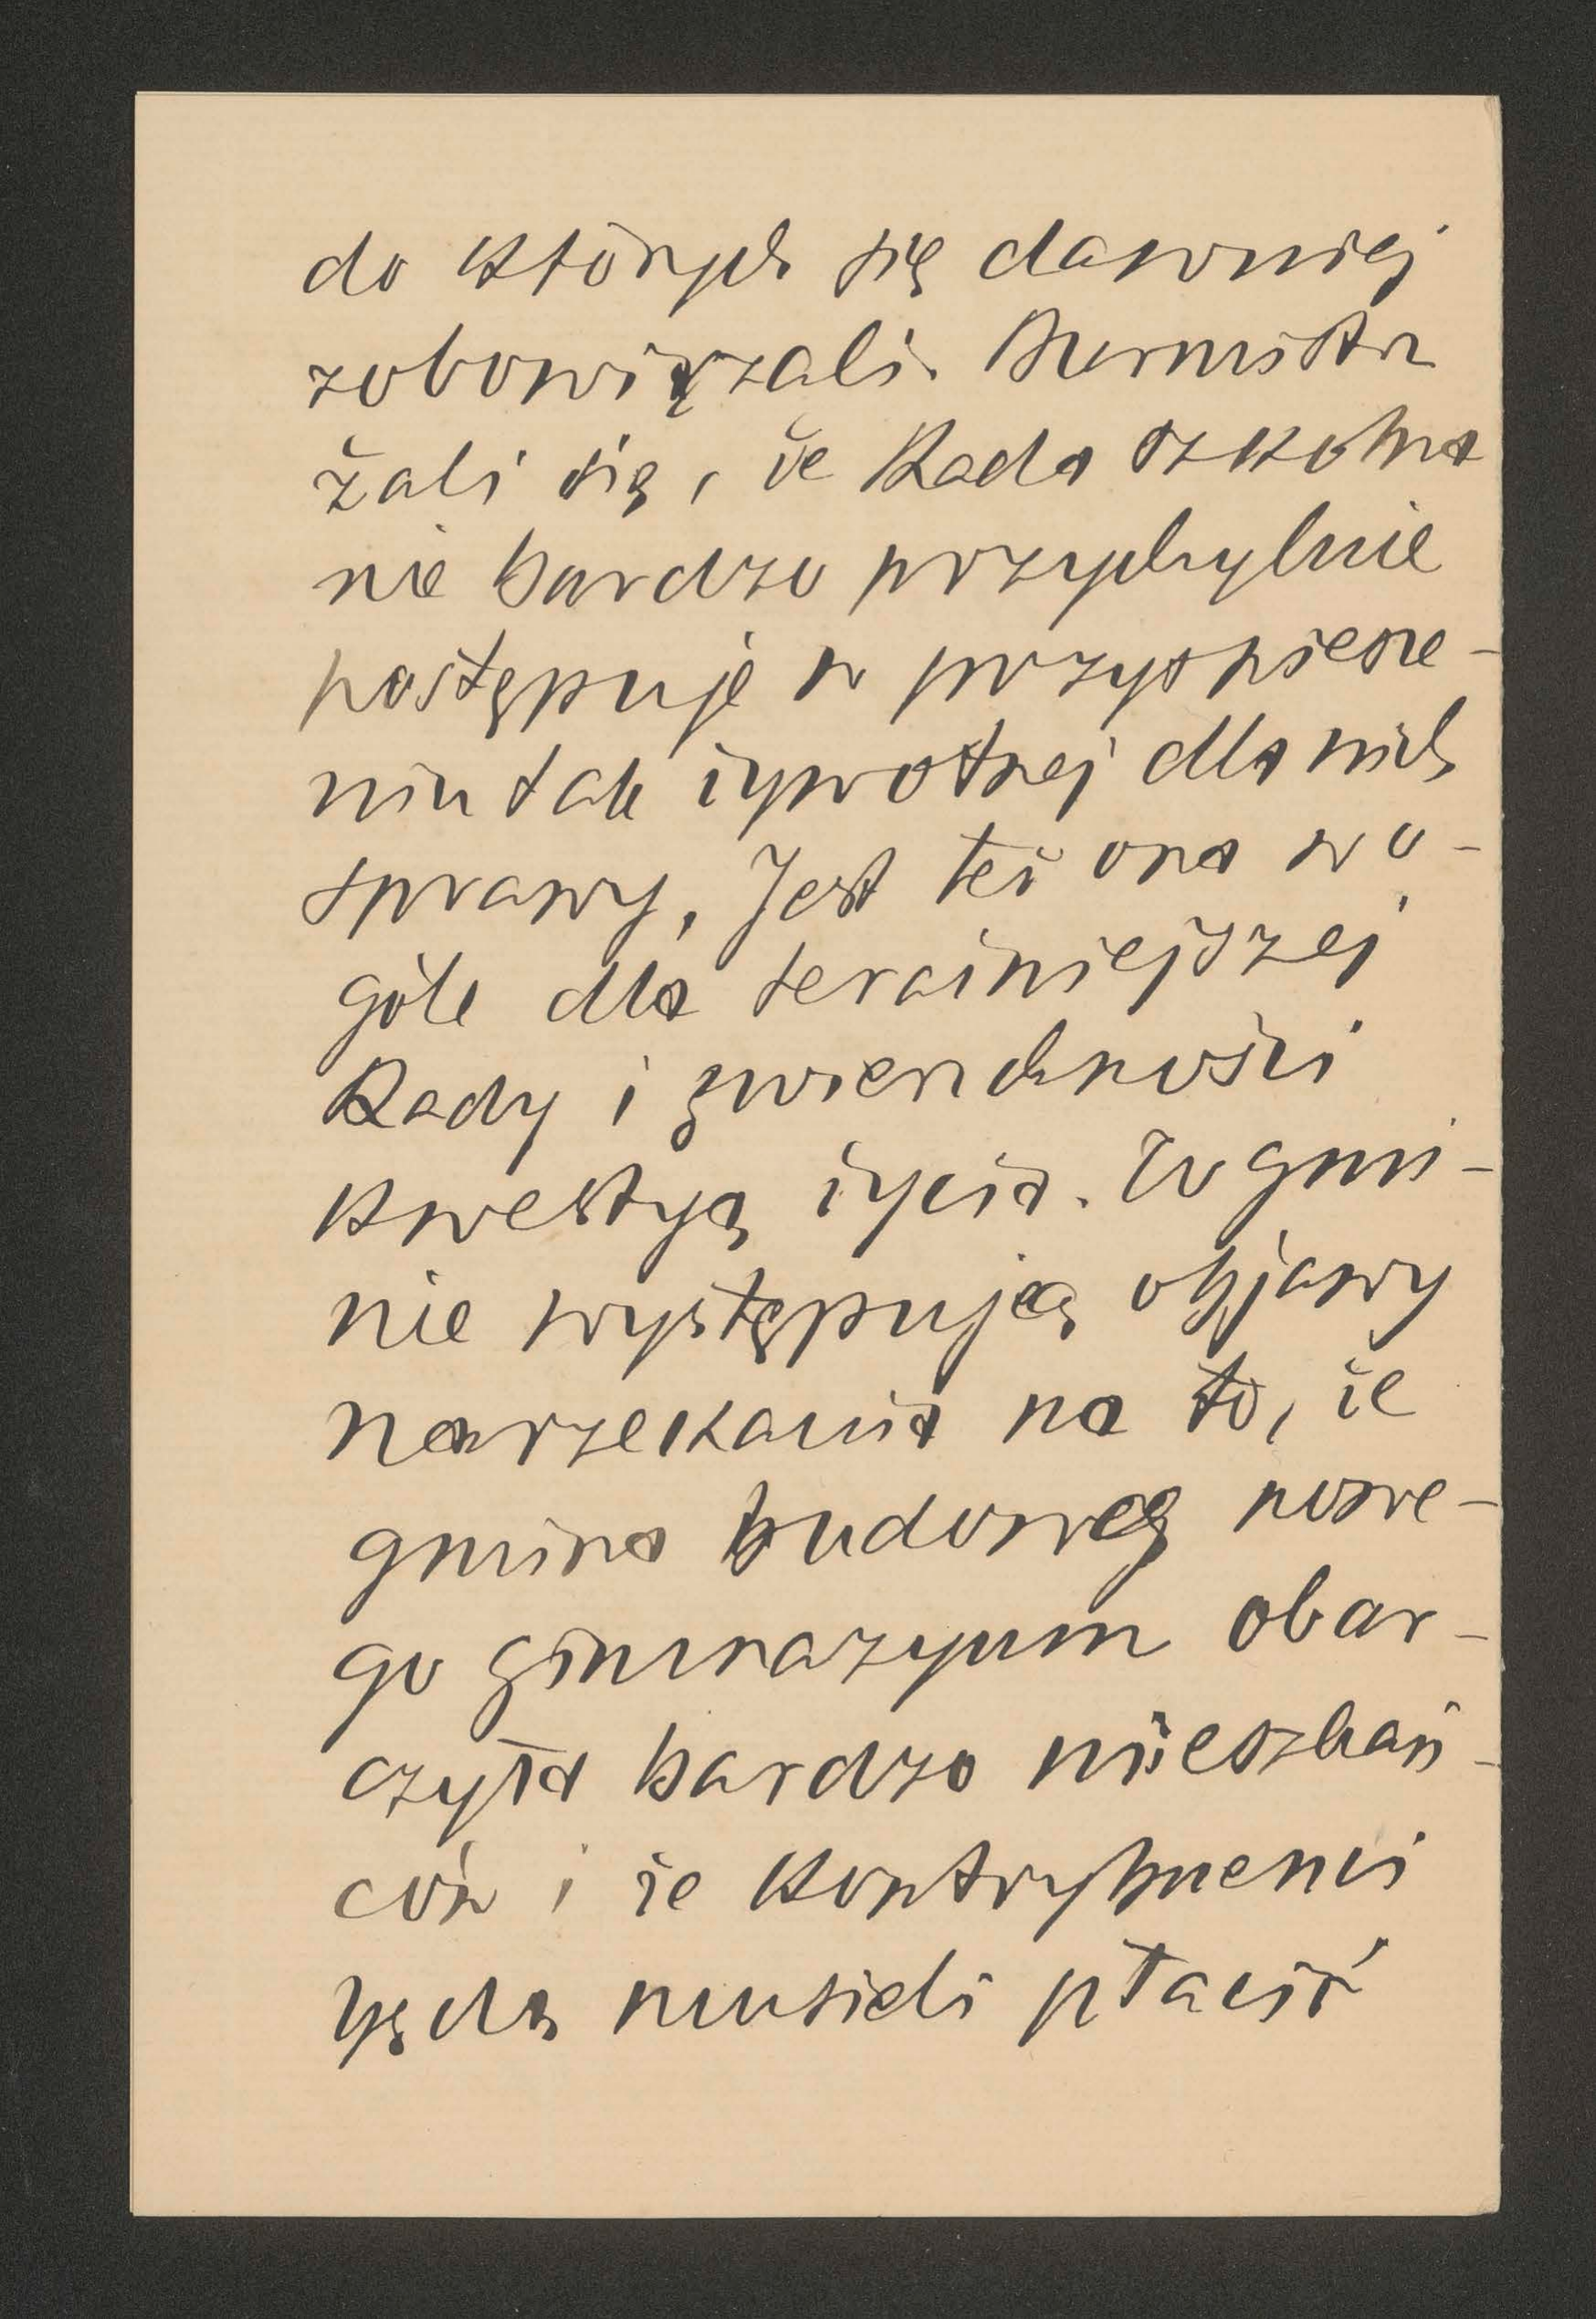 do których się dawniej
zobowiązali. Burmistrz
żali się, że Rada szkolna
nie bardzo przychylnie
postępuje w przyspiesze-
niu tak żywotnej dla nich
sprawy. Jest też ona w o-
góle dla teraźniejszej
Rady i zwierzchności
kwestyą życia. W gmi-
nie występują objawy
narzekania na to, że
gmina budową nowe-
go gimnazyum obar-
czyła bardzo mieszkań-
ców i że kontrybuenci
będą musieli płacić